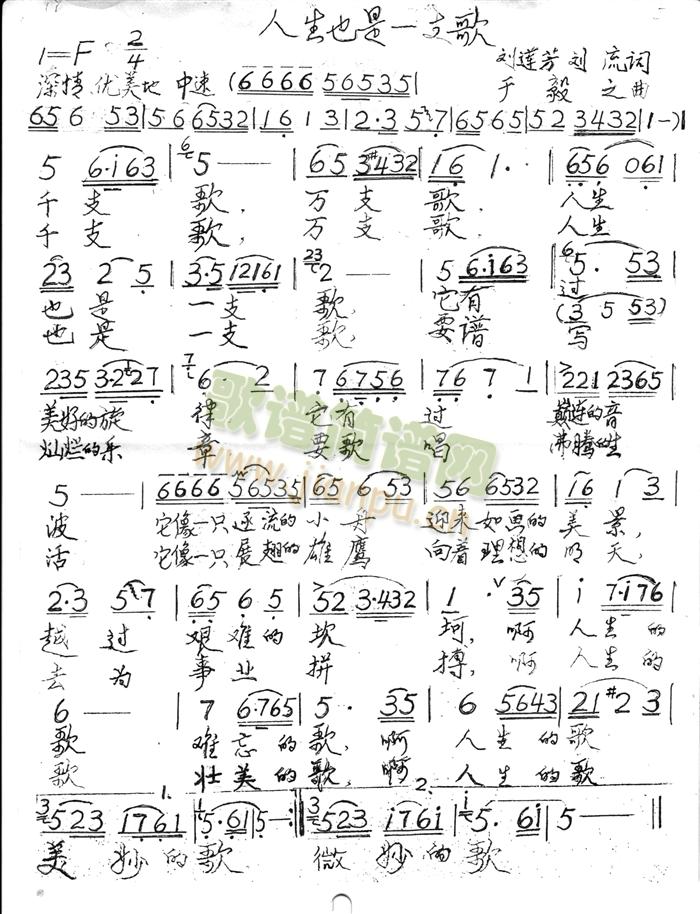 人生也是一支歌
1=F 2/4
刘莲芳 刘流词
深情 优美地 中速 (6666 56535|
于毅之曲
656 53|56 6532|16 13|2·3 57|6565|52 3432|1-)|
5 6·i63 5 —— 65 3#432 16 1· 656 061
千支 歌, 万支 歌. 人生
千支 歌, 万支 歌. 人生
23 2 5|3·5 12161|2 ——|5 6·i63|5· 53
也是 一支 歌, 它有 过
也是 一支 歌; 要谱 写
(3 5 53)
235 3·2 27 6· 2 7 6756 76 7 1 221 2365
美好的旋 律 它有 过 巅连的音
灿烂的乐 章 要歌 唱 沸腾的生
5 —— 6666 56535 65 6 53 56 6532 16 1 3
波 它像一只逐流的 小舟 迎来如画的 美景,
活 它像一只展翅的 雄鹰 向着理想的 明天,
2·3 57 65 6 5 52 3·432 1 · 35 i 7·i76
越过 艰难的 坎 坷, 啊 人生的
去为 事业 拼 搏, 啊 人生的
6 —— 7 6·765 5· 35 6 5643 21 #2 3
歌 难忘的 歌, 啊 人生的歌
歌 壮美的 歌, 啊 人生的歌
1. 2.
523 1761|5·61|5—:||523 i76i|5· 6i|5——||
美 妙的歌 微 妙的歌
歌谱简谱网
www.jianpu.cn